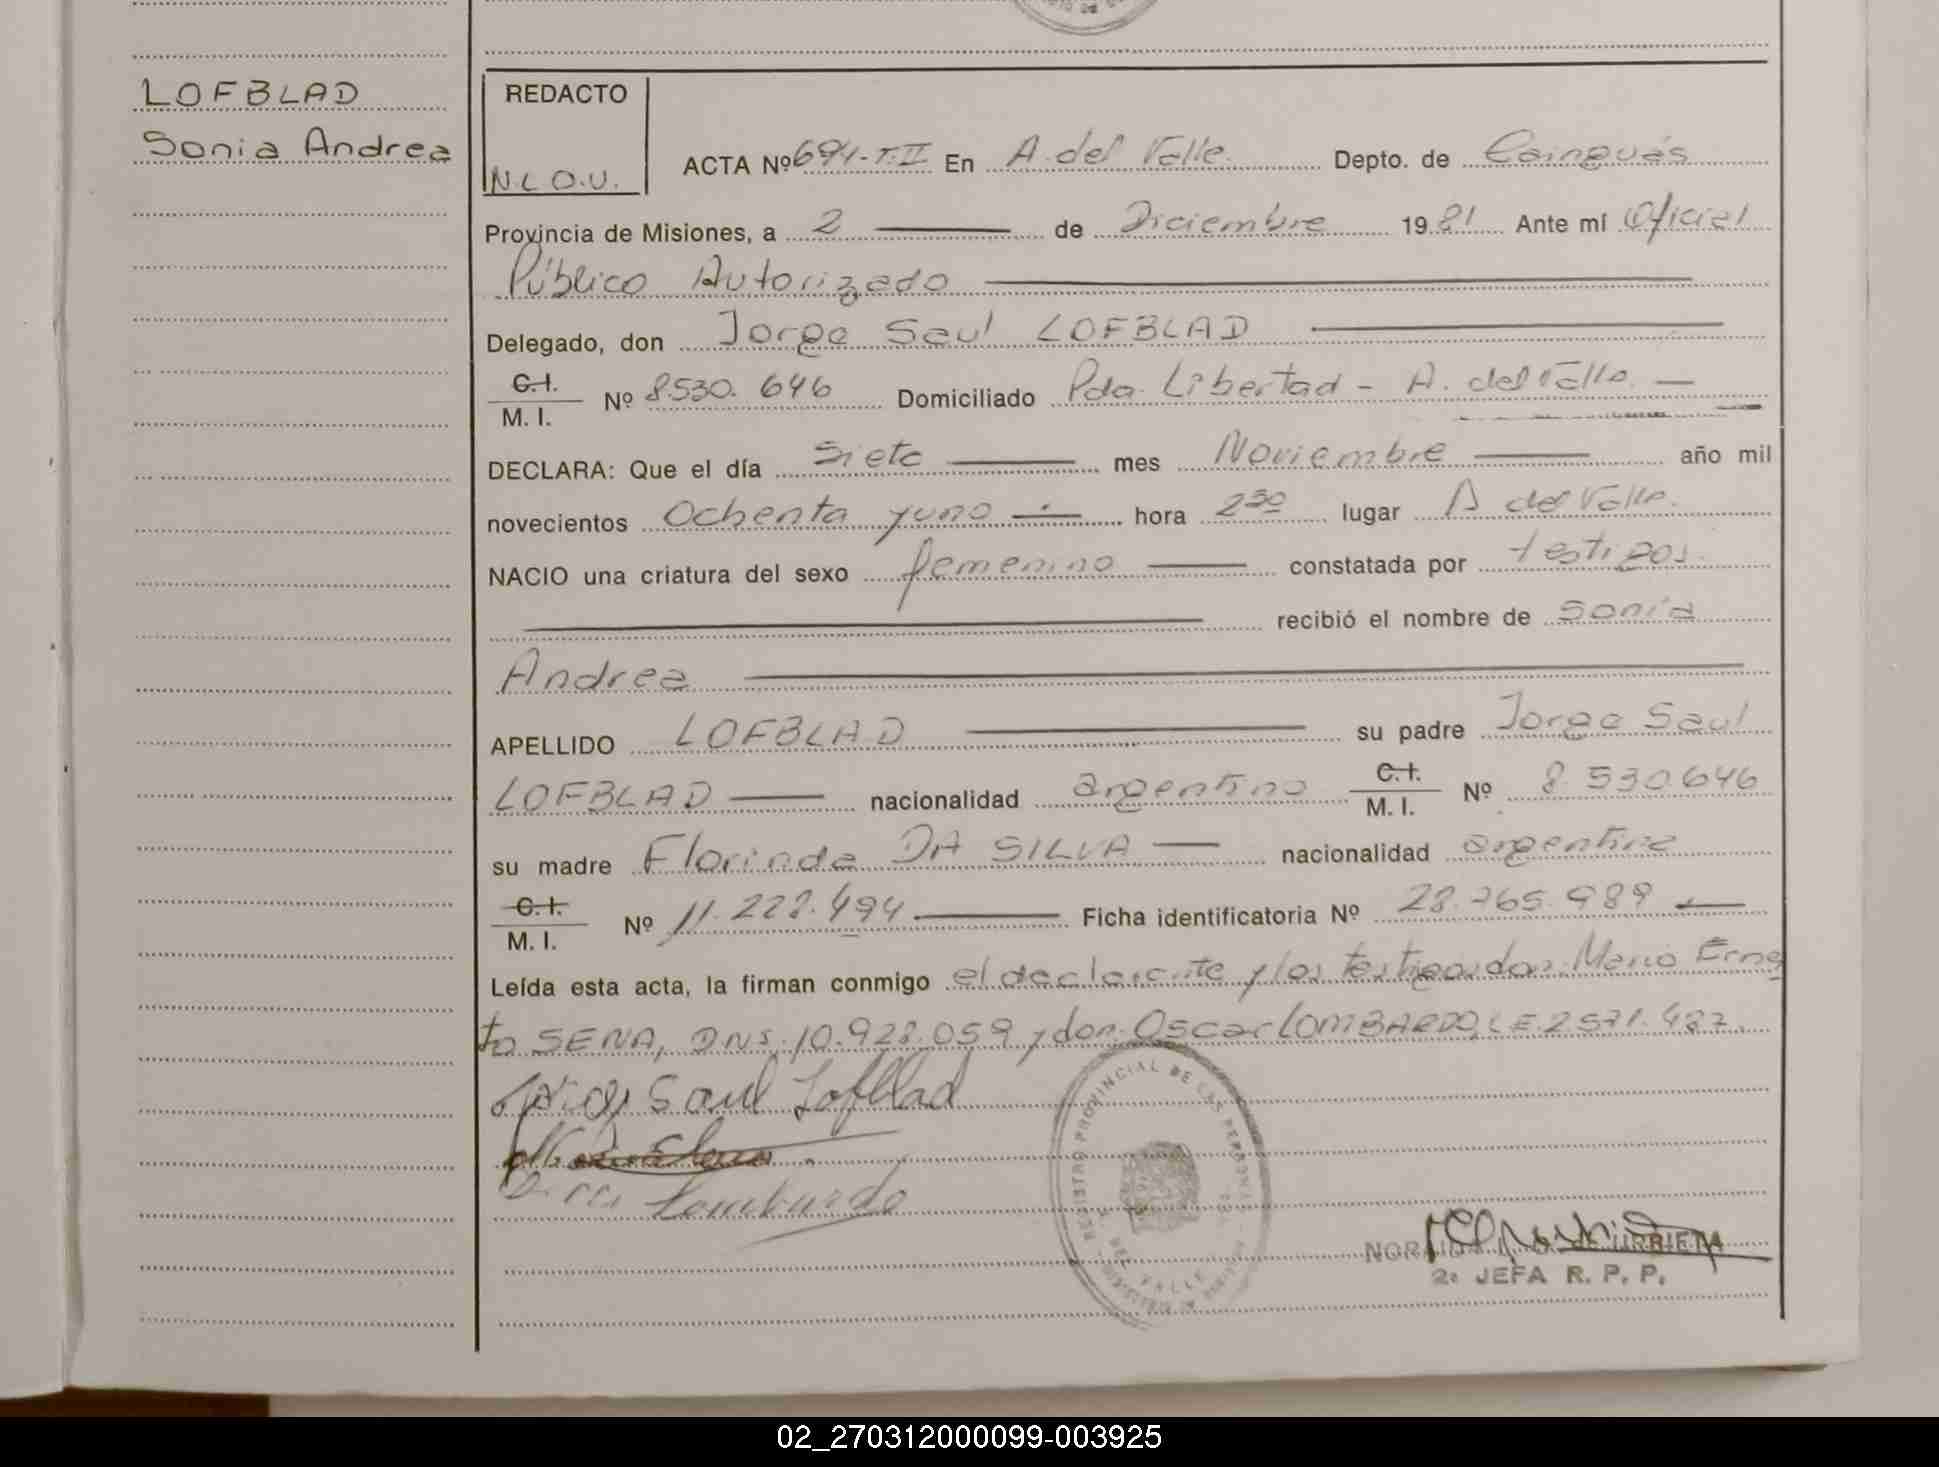 LOFBLAD
Sonia Andrea
REDACTO
N.L.O.U.
ACTA Nº 694-T.II En A. del Valle Depto. de Cainguás
Provincia de Misiones, a 2 de Diciembre 1981 Ante mí Oficial
Público Autorizado
Delegado, don Jorge Saul LOFBLAD
C.I.
M. I. Nº 8.530.646 Domiciliado Pda. Libertad - A. del Valle
DECLARA: Que el día Siete mes Noviembre año mil
novecientos Ochenta y uno hora 2 30 lugar A del Valle
NACIO una criatura del sexo femenino constatada por testigos
recibió el nombre de Sonia
Andrea
APELLIDO LOFBLAD su padre Jorge Saul
LOFBLAD nacionalidad argentino C.I. M. I. Nº 8.530.646
su madre Florinda DA SILVA nacionalidad argentina
C.I.
M. I. Nº 11.228.494 Ficha identificatoria Nº 28.765.989
Leída esta acta, la firman conmigo el declarante y los testigos don Mario Ernes
to SENA, DNI. 10.928.059 y don Oscar LOMBARDO, LE 2.571.487.
Jorge Saul Lofblad
Lombardo
REGISTRO PROVINCIAL DE LAS PERSONAS
DEL VALLE
URRIETA
2ª JEFA R. P. P.
02_270312000099-003925